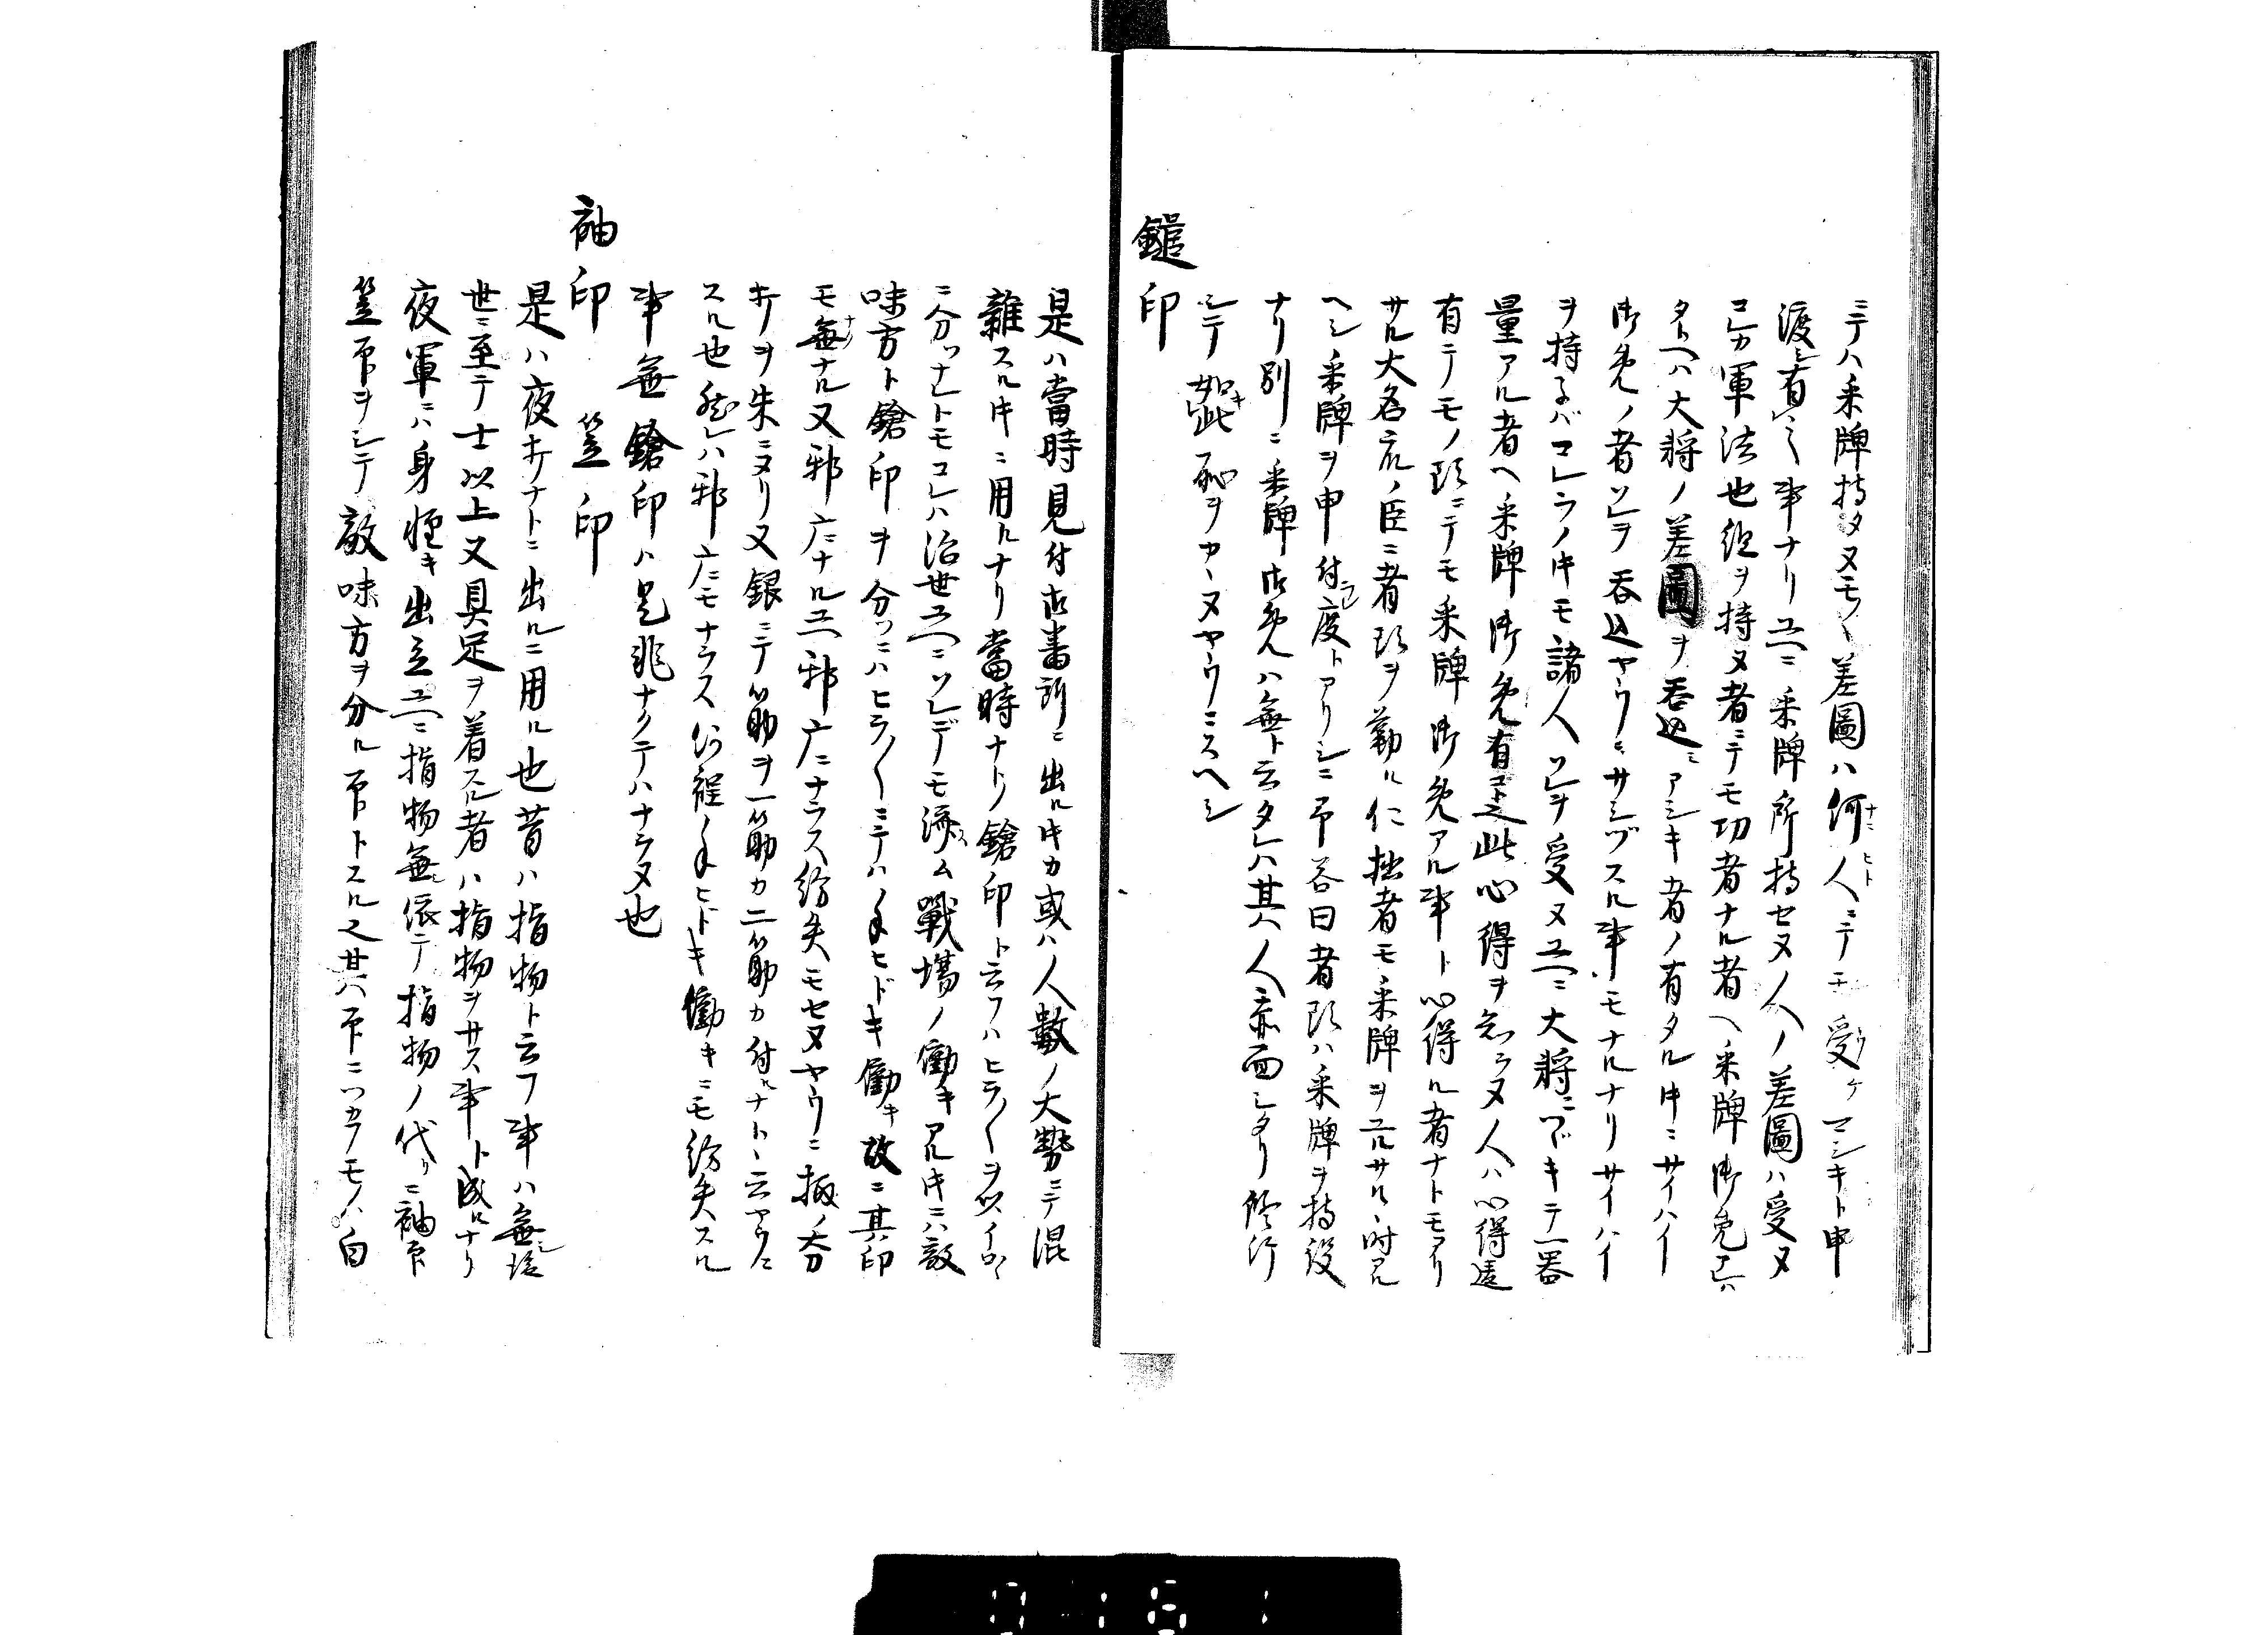 ニテハ采牌持タヌモノヽ差圖ハ何人ニテモ受ケマシキト申
渡シ有ヘキ事ナリ故ニ采牌所持セヌ人ノ差圖ハ受ヌ
コレカ軍法也但ヲ持ヌ者ニテモ功者ナル者ヘ采牌御免
タトヘハ大将ノ差圖ヲ呑込ミアシキ者ノ有タル時ニサイハイ
御免ノ者ソレヲ呑込ヤウニサシヅスル事モナルナリサイハイ
ヲ持子バコレラノ時モ諸人ソレヲ受ヌ故ニ大将ニツヾキテ器
量アル者ヘ采牌御免有コト也此心得ヲ知ラヌ人ハ心得違
有テモノ頭ニテモ采牌御免アル事ト心得ル者ナトモアリ
サル大名衆ノ臣ニ者頭ヲ勤ル仁拙者モ采牌ヲユルサルヽ時アル
ヘシ采牌ヲ申付度トアリシニ予答曰者頭ハ采牌ヲ持役
ナリ別ニ采牌御免ハ無ト云タレハ其人赤面シタリ修行
シテ如此恥ヲカヽヌヤウニスヘシ
鎗印
是ハ當時見付御番所ニ出ル時カ或ハ人數ノ大勢ニテ混
雜スル時ニ用ルナリ當時ナトノ鎗印ト云フハヒラ〳〵ヲ以イロ〳〵
ニ分ツナレトモコレハ治世故ニソレデモ濟ム戰塲ノ働キアル時ニハ敵
味方ト鎗印ヲ分ツニハヒラ〳〵ニテハ手ヒドキ働キ故ニ其印
モ無ナル又邪广ニナル故邪广ニナラス紛失モセヌヤウニ柄ノ太刀
キヲ朱ニヌリ又銀ニテ筋ヲ一筋カ二筋カ付ルナトヽ云ヤウニ
スル也然レハ邪广ニモナラス何程手ヒドキ働キニモ紛失スル
事無鎗印ハ是非ナクテハナラヌ也
袖印　笠印
是ハ夜キナトニ出ルニ用ル也昔ハ指物ト云フ事ハ無シ
世ニ至テ士以上又具足ヲ着スル者ハ指物ヲサス事ト成ルナリ
夜軍ニハ身輕キ出立故ニ指物無シ依テ指物ノ代リニ袖印
笠印ヲシテ敵味方ヲ分ル印トスル也其印ニツカフモノハ白